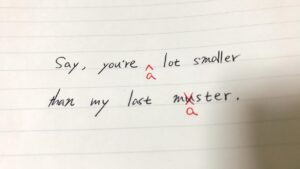 Say, you're ^a lot smaller
than my last muster.
a